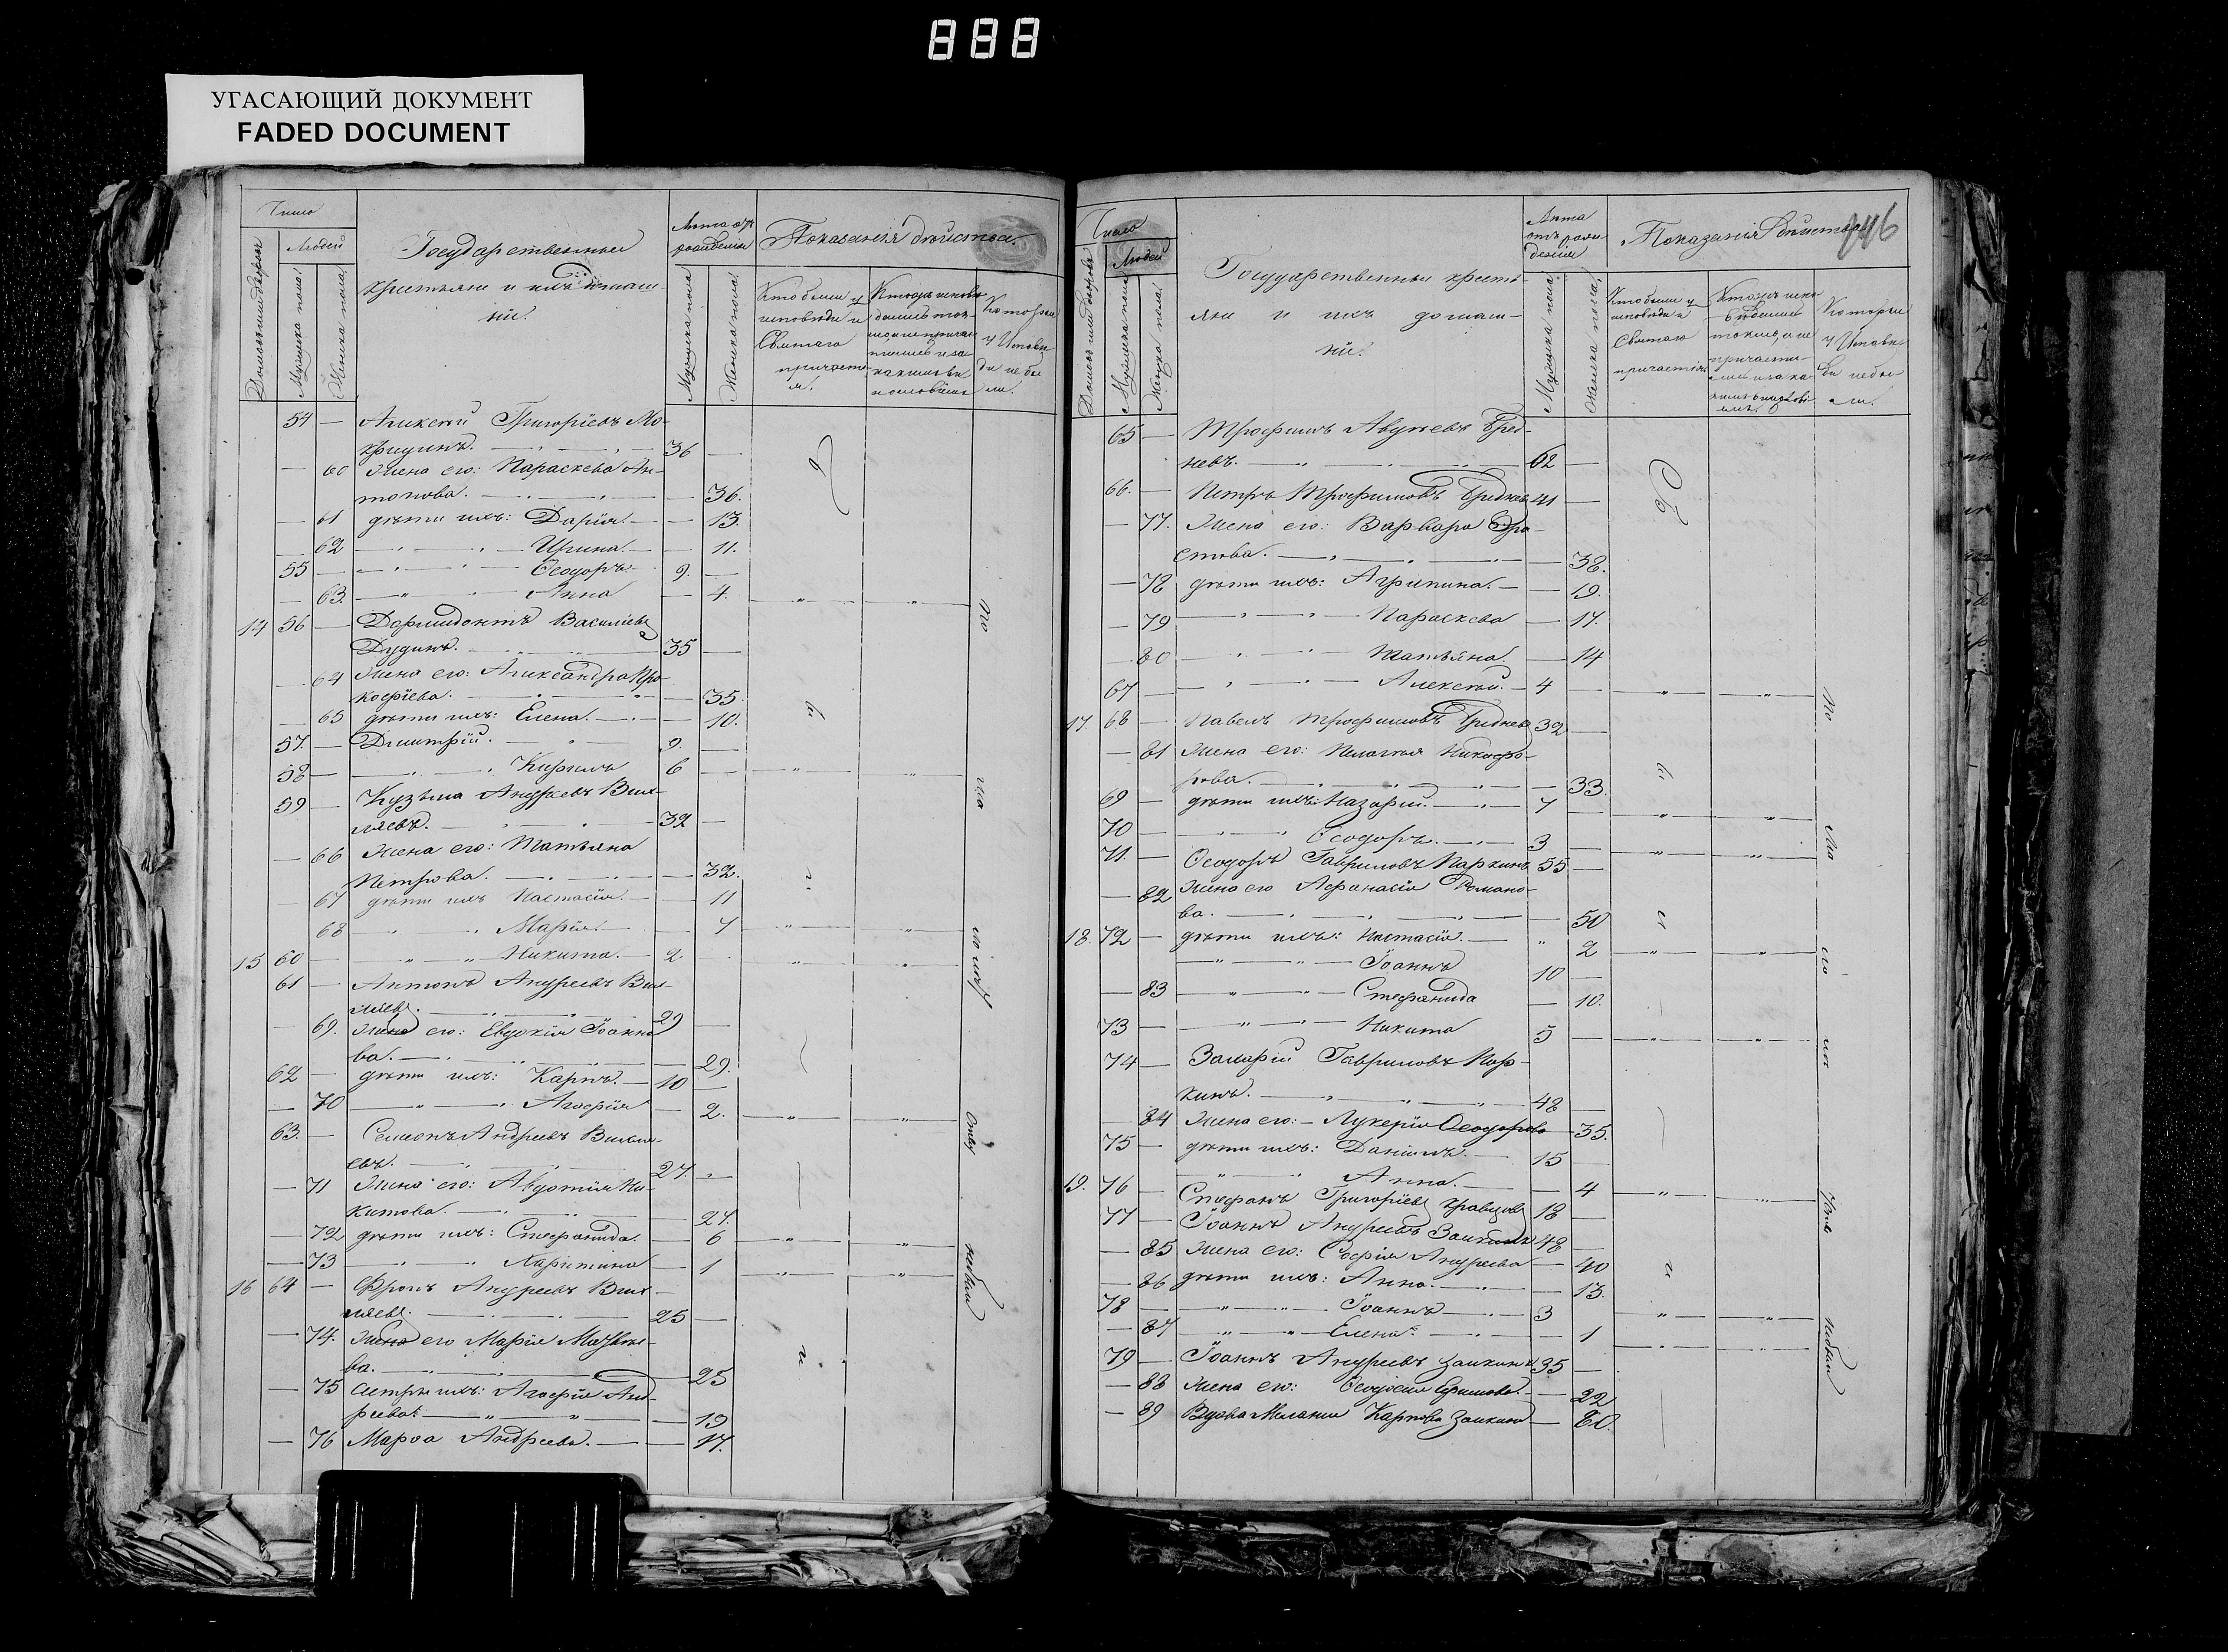 888
УГАСАЮЩИЙ ДОКУМЕНТ
FADED DOCUMENT
Число
Людей
Мужеска пола
Женска пола
Государственныи
крестьяне и ихъ домаш-
ніи.
Лѣта отъ
рожденія
Мужеска пола
Женска пола
Показанія бытства.
Кто были у
исповѣди и
Святаго
причасті
я.
Которыи
у Испове
ди не бы
ли.
54 — Алексѣй Григоріевъ Мо-
кридинъ. 36 —
— 60 Жена его: Параскева Ан-
тонова. — 36.
— 61 дѣти ихъ: Дарія. — 13.
— 62 Ирина. — 11.
55 — Ѳеодоръ. 9. —
— 63. Анна — 4.
14 56 — Дормидонтъ Василіевъ
Дудинъ. 35 —
— 64 Жена его: Александра Про
кофіева. — 35.
— 65 дѣти ихъ: Елена. — 10.
57. — Дмитрій. 9. —
58 — Кирилъ 6 —
59 — Кузьма Андреевъ Вил-
ляевъ. 32 —
— 66 Жена его: Татьяна
Петрова. — 32.
— 67 дѣти ихъ Настасія. — 11
68 Марія. — 7
15 60 — Никита. 2.
61 — Антонъ Андреевъ Вил-
ляевъ. 29 —
69. Жена его: Евдокія Іоанно
ва. — 29.
62 — дѣти ихъ: Карпъ. 10 —
— 70 Агафія — 2.
63. — Семіонъ Андреевъ Вилли-
евъ. 27. —
— 71 Жена его: Авдотія Ни-
китова. — 27.
— 72 дѣти ихъ: Стефанида. — 6
— 73 Харитина — 1
16 64 — Фролъ Андреевъ Вил-
ляевъ. 25 —
— 74. Жена его Марія Матвѣе-
ва. — 25
— 75 сестры ихъ: Агафія Анд-
реева. — 19
— 76 Марѳа Андреева. — 17.
по
сло
Отву
небыли
146
Число
Людей
Мужеска пола
Женска пола.
Государственныи кресть-
яни и ихъ домаш-
ніи.
Лѣта
отъ рож-
денія
Мужеска пола.
Женска пола,
Показанія бытства
Кто были у
исповѣди и
Святаго
причастія
Которыи
у Испове
ди небы
ли.
65 — Трофимъ Авдѣевъ Гред-
невъ. 62 —
66. — Петръ Трофимовъ Гредневъ 41 —
— 77. Жена его: Варвара
— 38.
— 78 дѣти ихъ: Агрипина. — 19.
— 79 Параскева — 17.
80 Татьяна. — 14
67 — Алексѣй. 4 —
17. 68 — Павелъ Трофимовъ Гредневъ 32 —
— 81 Жена его: Пелагія Никифо-
рова. — 33.
69 — дѣти ихъ: Назарій. 7 —
70 — Ѳеодоръ. 3 —
71. — Ѳеодоръ Гавриловъ Паркинъ 55 —
— 82 Жена его Афанасія Романо-
ва. — 50
18. 72 — дѣти ихъ: Настасія. " 2
Іоаннъ 10 —
— 83 Стефанида — 10.
73 — Никита 5 —
74 — Захарій Гавриловъ Пар-
кинъ. 48 —
— 84 Жена его: Лукерія Ѳеодорова 35.
75 — дѣти ихъ: Даніилъ. 15 —
Анна. — 4
19. 76 — Стефанъ Григоріевъ Кравцовъ 18 —
77 — Іоаннъ Андреевъ Заикинъ 48 —
— 85 Жена его: Софія Андреева — 40
— 86 дѣти ихъ: Анна. — 13.
78 — Іоаннъ 3 —
— 87 Елена. — 1
79 — Іоаннъ Андреевъ Заикинъ 35 —
— 88 Жена его: Ѳеодосія Ефимова. — 22
— 89 Вдова Меланія Карпова Заикина — 80.
по
небыли